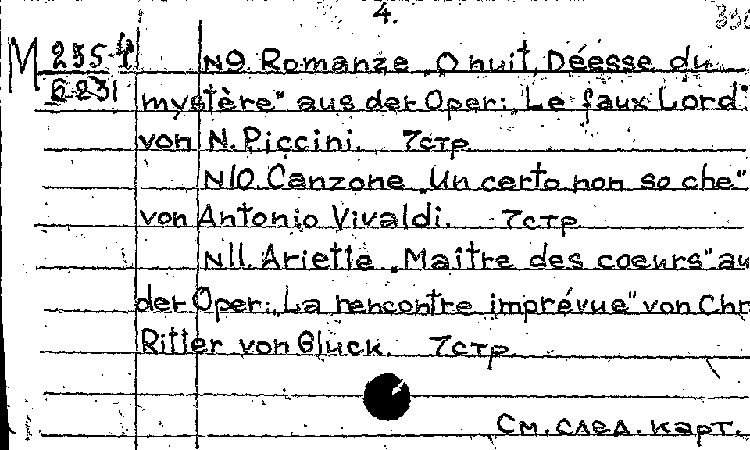 4.
M 255-4
6-231
N9. Romanze „O nuit, Déesse du
mystère" aus der Oper: „Le faux Lord"
von N. Piccini. 7стр
N10. Canzone „Un certo non so che"
von Antonio Vivaldi. 7стр
N11. Ariette „Maitre des coeurs" au
der Oper: „La rencontre imprévue" von Chr
Ritter von Gluck. 7стр
См. след. карт.